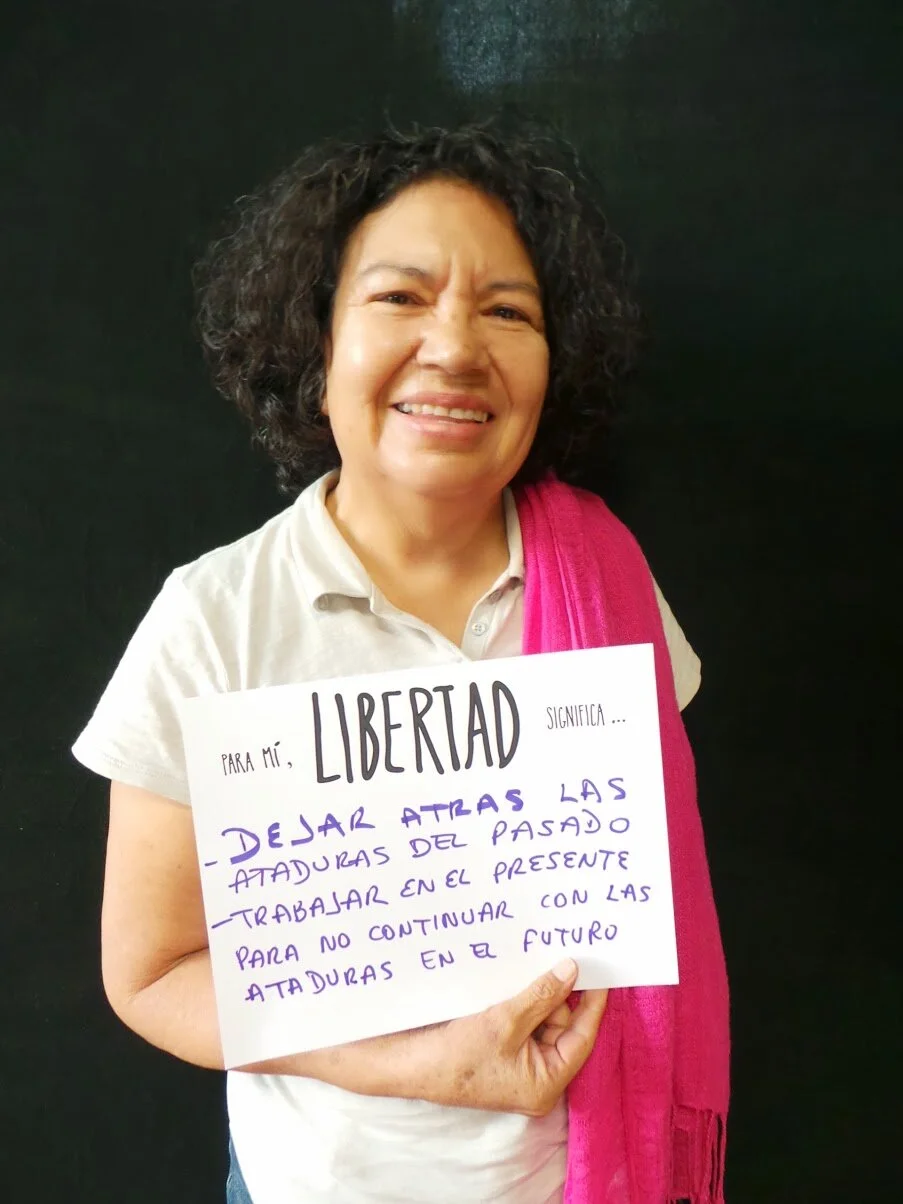 PARA MÍ, LIBERTAD SIGNIFICA ...
- DEJAR ATRAS LAS
ATADURAS DEL PASADO
- TRABAJAR EN EL PRESENTE
PARA NO CONTINUAR CON LAS
ATADURAS EN EL FUTURO